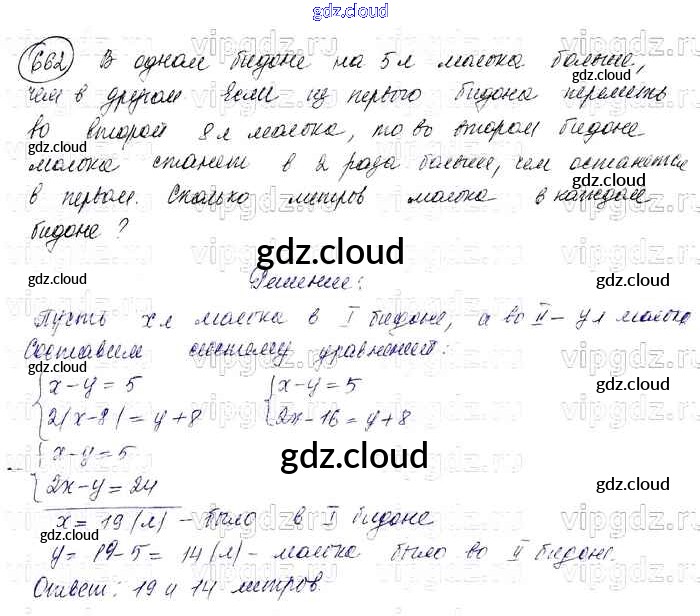 gdz.cloud
662 В одном бидоне на 5 л молока больше,
чем в другом. Если из первого бидона перелить
во второй 8 л молока, то во втором бидоне
молока станет в 2 раза больше, чем останется
в первом. Сколько литров молока в каждом
бидоне?
Решение:
Пусть x л молока в I бидоне, а во II – y л молока
Составим систему уравнений:
{x-y=5 {x-y=5
2(x-8)=y+8 2x-16=y+8
{x-y=5
2x-y=24
x=19(л) – было в I бидоне
y=19-5=14(л) – молока было во II бидоне.
Ответ: 19 и 14 литров.
gdz.cloud
gdz.cloud
gdz.cloud
gdz.cloud
gdz.cloud
gdz.cloud
gdz.cloud
gdz.cloud
gdz.cloud
gdz.cloud
gdz.cloud
gdz.cloud